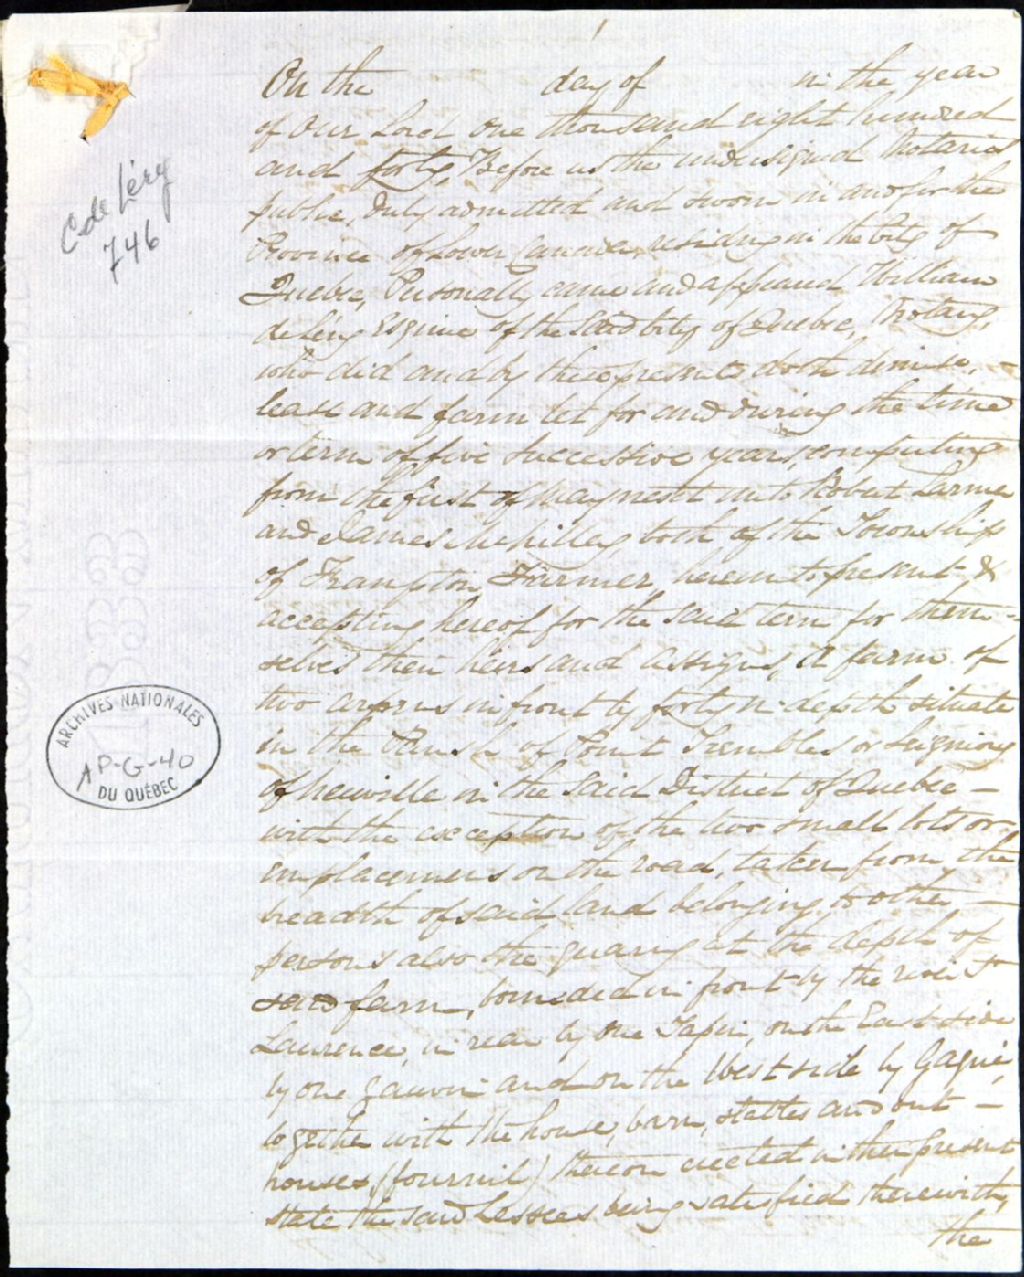 On the day of in the year
of Our Lord One thousand eight hundred
and forty, Before us the undersigned Notaries
public, duly admitted and sworn in and for the
Province of Lower Canada, residing in the City of
Quebec, Personally came and appeared William
de Léry Esquire of the said City of Quebec, Notary,
who did and by these presents doth demise,
lease and farm let for and during the time
or term of five successive years, computing
from the first of May next unto Robert
and James both of the Township
of Frampton, Farmer, hereunto present &
accepting hereof for the said term for them-
selves their heirs and assigns, A farm of
two arpens in front by forty in depth situate
in the Parish of Point Trembles or Seigniory
of Neuville in the said District of Quebec —
with the exception of the two small lots or
emplacemens on the road, taken from the
breadth of said land belonging to other —
persons also the quarry at the depth of
said farm, bounded in front by the river St
Laurence, in rear by One Papin, on the East side
by one Gauvin and on the West side by Gagné,
together with the house, barn, stables and out —
houses, (fournil) thereon erected in their present
state the said Lessees being satisfied therewith,
the
C de Léry
746
ARCHIVES NATIONALES
AP-G-40
DU QUÉBEC